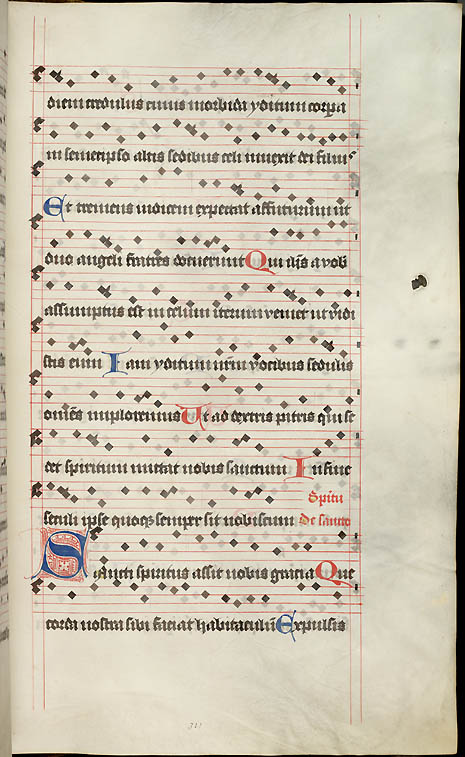 diem credulus cuius morbidi ydituni corpa
in semetipso altis sedibus celi inuexit dei filius
Et tremens iudicem expectat affuturum ut
duo angeli fratres docuerunt Qui ihs a vob
assumptus est in celum iterum veniet ut vidi
stis eum Iam ydituni nrm vocibus sedulis
omnes imploremus Ut ad dextris patris qui se
det spiritum mittat nobis sanctum In fine
Spitu
seculi ipse quoqz semper sit nobiscum De sancto
Sancti spiritus assit nobis gracia Que
corda nostra sibi faciat habitaculum Expulsis